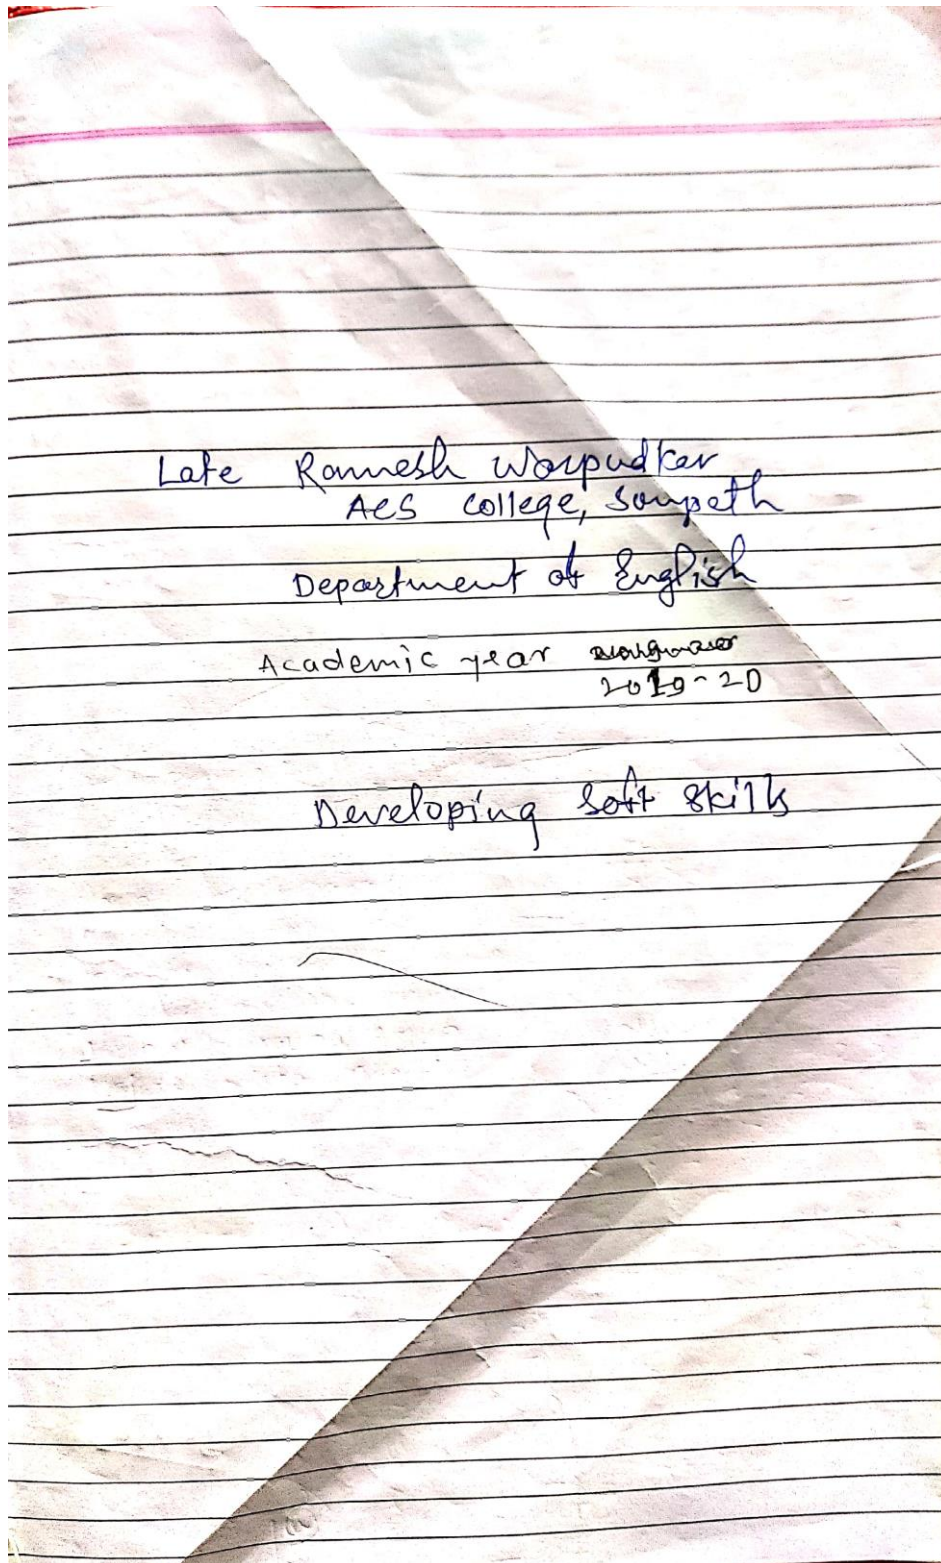 Late Ramesh Warpudkar
ACS College, Sonpeth
Department of English
Academic year
2019-20
Developing Soft Skills